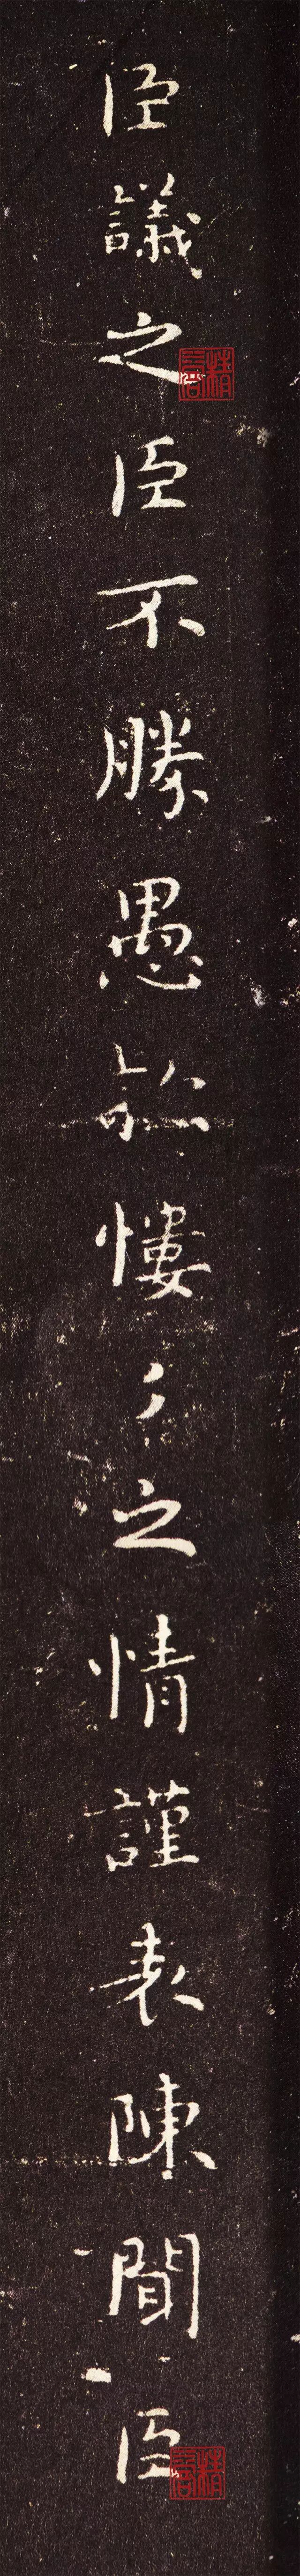 臣議之臣不勝愚款慺〻之情謹表陳聞臣